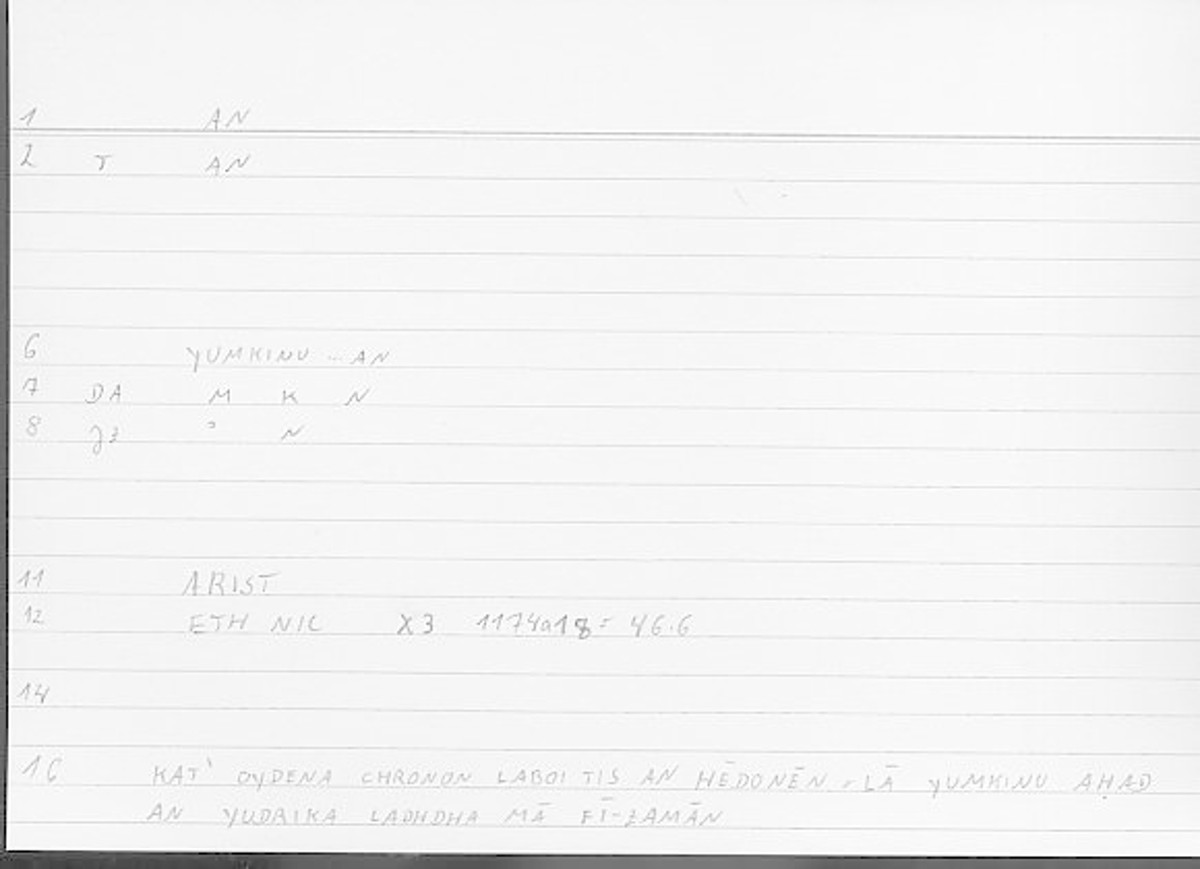 1 AN
2 T AN
6 YUMKINU ... AN
7 DA M K N
8 N
11 ARIST
12 ETH NIC X3 1174a18 = 46.6
14
16 KAT' OYDENA CHRONON LABOI TIS AN HĒDONĒN - LĀ YUMKINU AḤAD
AN YUDRIKA LADHDHA MĀ FĪ-ZAMĀN